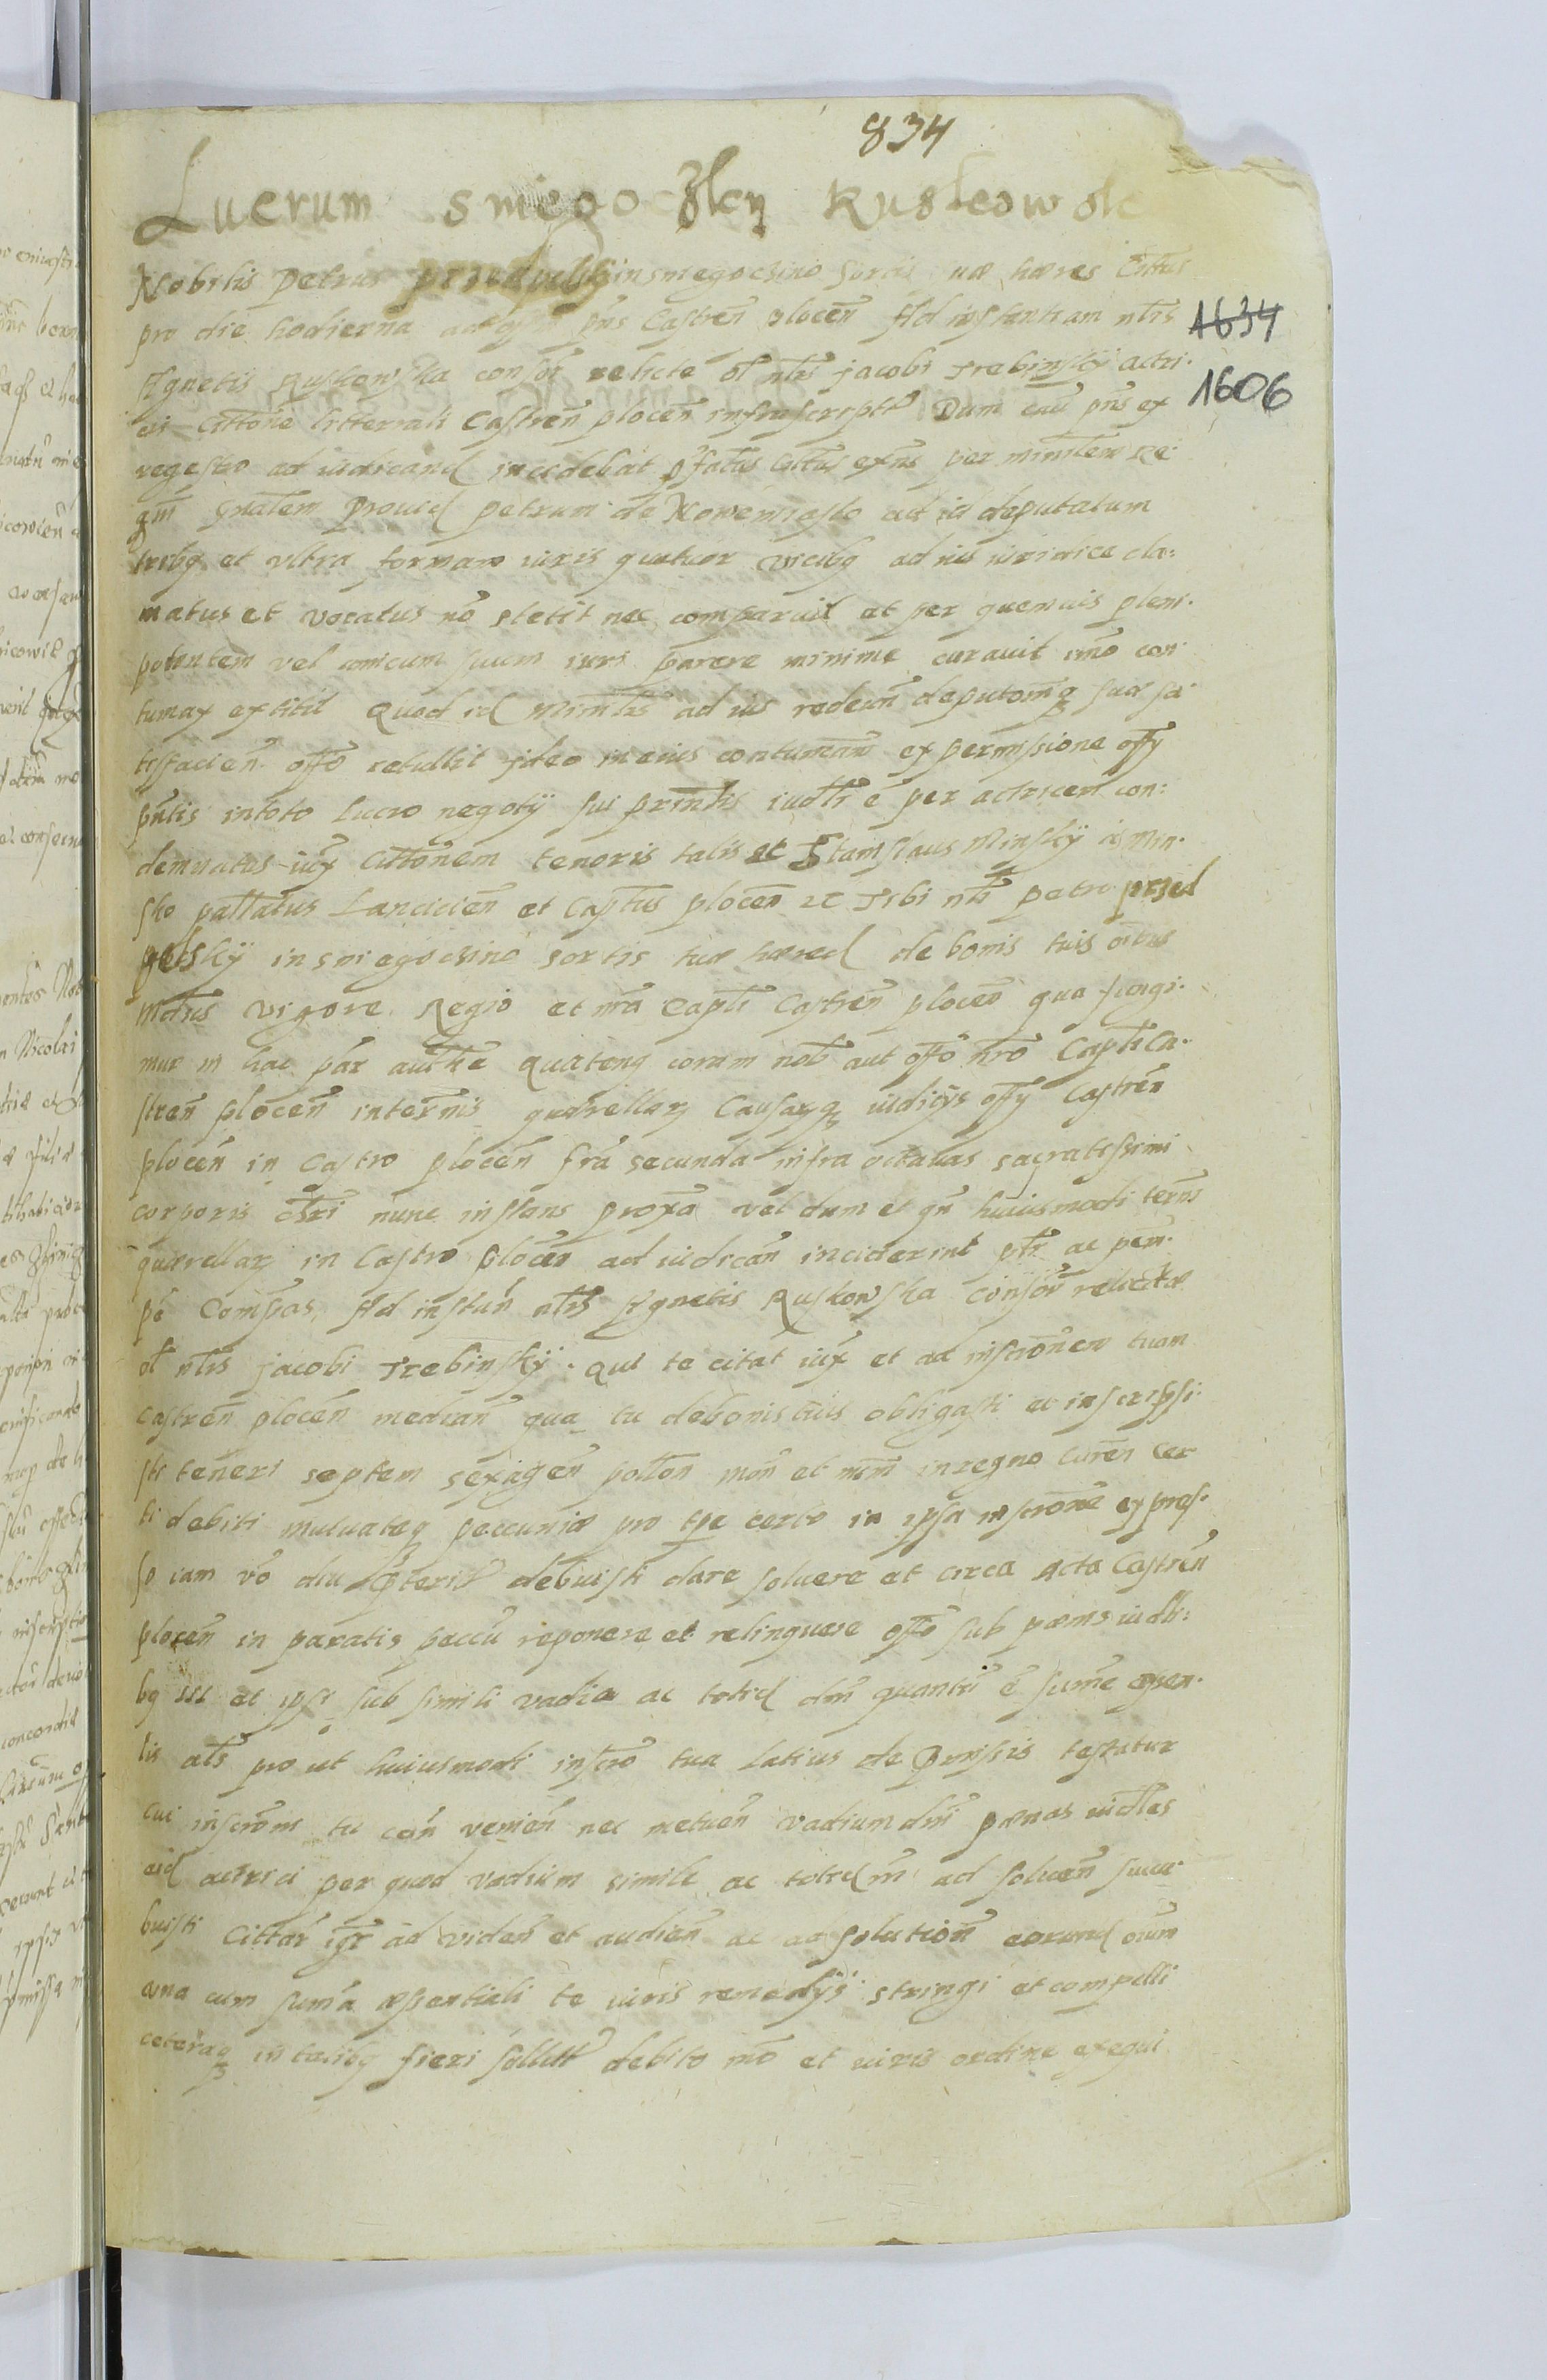 834
Lucrum smiegoczlen Ruskowsk
Nobilis Petrus in smiegocsino sortis uæ hæres Cittus
pro die hodierna ad pns Castren plocen Ad instantiam nlis
1634
Agnetis Ruskowska consor relicte ol nlis jacobi Trebinskÿ actri
1606
cis Cittone litterali Castren plocen infrascript Dum cau pns ex
regestro ad iudicand incidebat pfatus Cittus exns per ministem Re
gni gnalem Provid petrum de Nowemiasto ad id deputatum
tribq et vltra formam iuris quatuor vicibq ad ius iuridice cla:
matus et vocatus no stetit nec comparuit et per quemuis pleni
potentem vel amicum suum iuri parere minime curauit imo con
tumax extitit Quod id Minlis ad ius redeun deputoniq suæ sa
tisfacien offo retullit jdeo in eius contumam ex permissione offÿ
pntis intoto lucro negotÿ sui prinlis iudli e per actricem con:
demnatus iux Cittonem tenoris talis et Stanislaus Minskÿ a Min
sko pallatus Lancicien et Captus plocen zc Tibi nli petro przed
pelskÿ in smiegocsino sortis tuæ hæred de bonis tuis oibus
Mdus vigore Regio et nra Capli Castren plocen qua fungi
mur in hac par authe quatenq coram nob aut offo nro Capli Ca
stren plocen internis quærellarz Causarqz iudicÿs offÿ Castren
plocen in Castro plocen fra secunda infra octauas sacratissimi
corporis chri nunc instans proxa vel dum et qn huiusmodi terns
quærellarz in Castro plocen ad iudican inciderint ptr ac pem
pe Compas, Ad instan nlis Agnetis Ruskowska consor relictæ
ol nlis jacobi Trebinskÿ. qui te citat iux et ad inscronem tuam
castren plocen median qua tu debonis tuis obligasti ac inscripsi
sti teneri septem sexagen pollon mon et nim in regno curen cer
ti debiti mutuateq peccuniæ pro tpe certo in ipsa inscrone expres
so iam vo diu pterit debuisti dare soluere et circa Acta Castren
plocen in paratis peccu reponere et relinquere offo sub pænis iudli:
bq et ipsi sub simili vadio ac totid dni quantu e sume essen
lis als pro ut huiusmodi inscro tua latius de pmissis testatur
cui inscroni tu con venien nec metuen vadium dni pænas iudles
eid actrici per quod vadium simile ac totid ad soluen succu
buisti Cittar igr ad viden et audien ac ad solution eorund oium
vna cum suma essentiali te iuris remedÿs stringi et compelli
ceteraqz in talibq fieri sollit debito mo et iuris ordine exequi